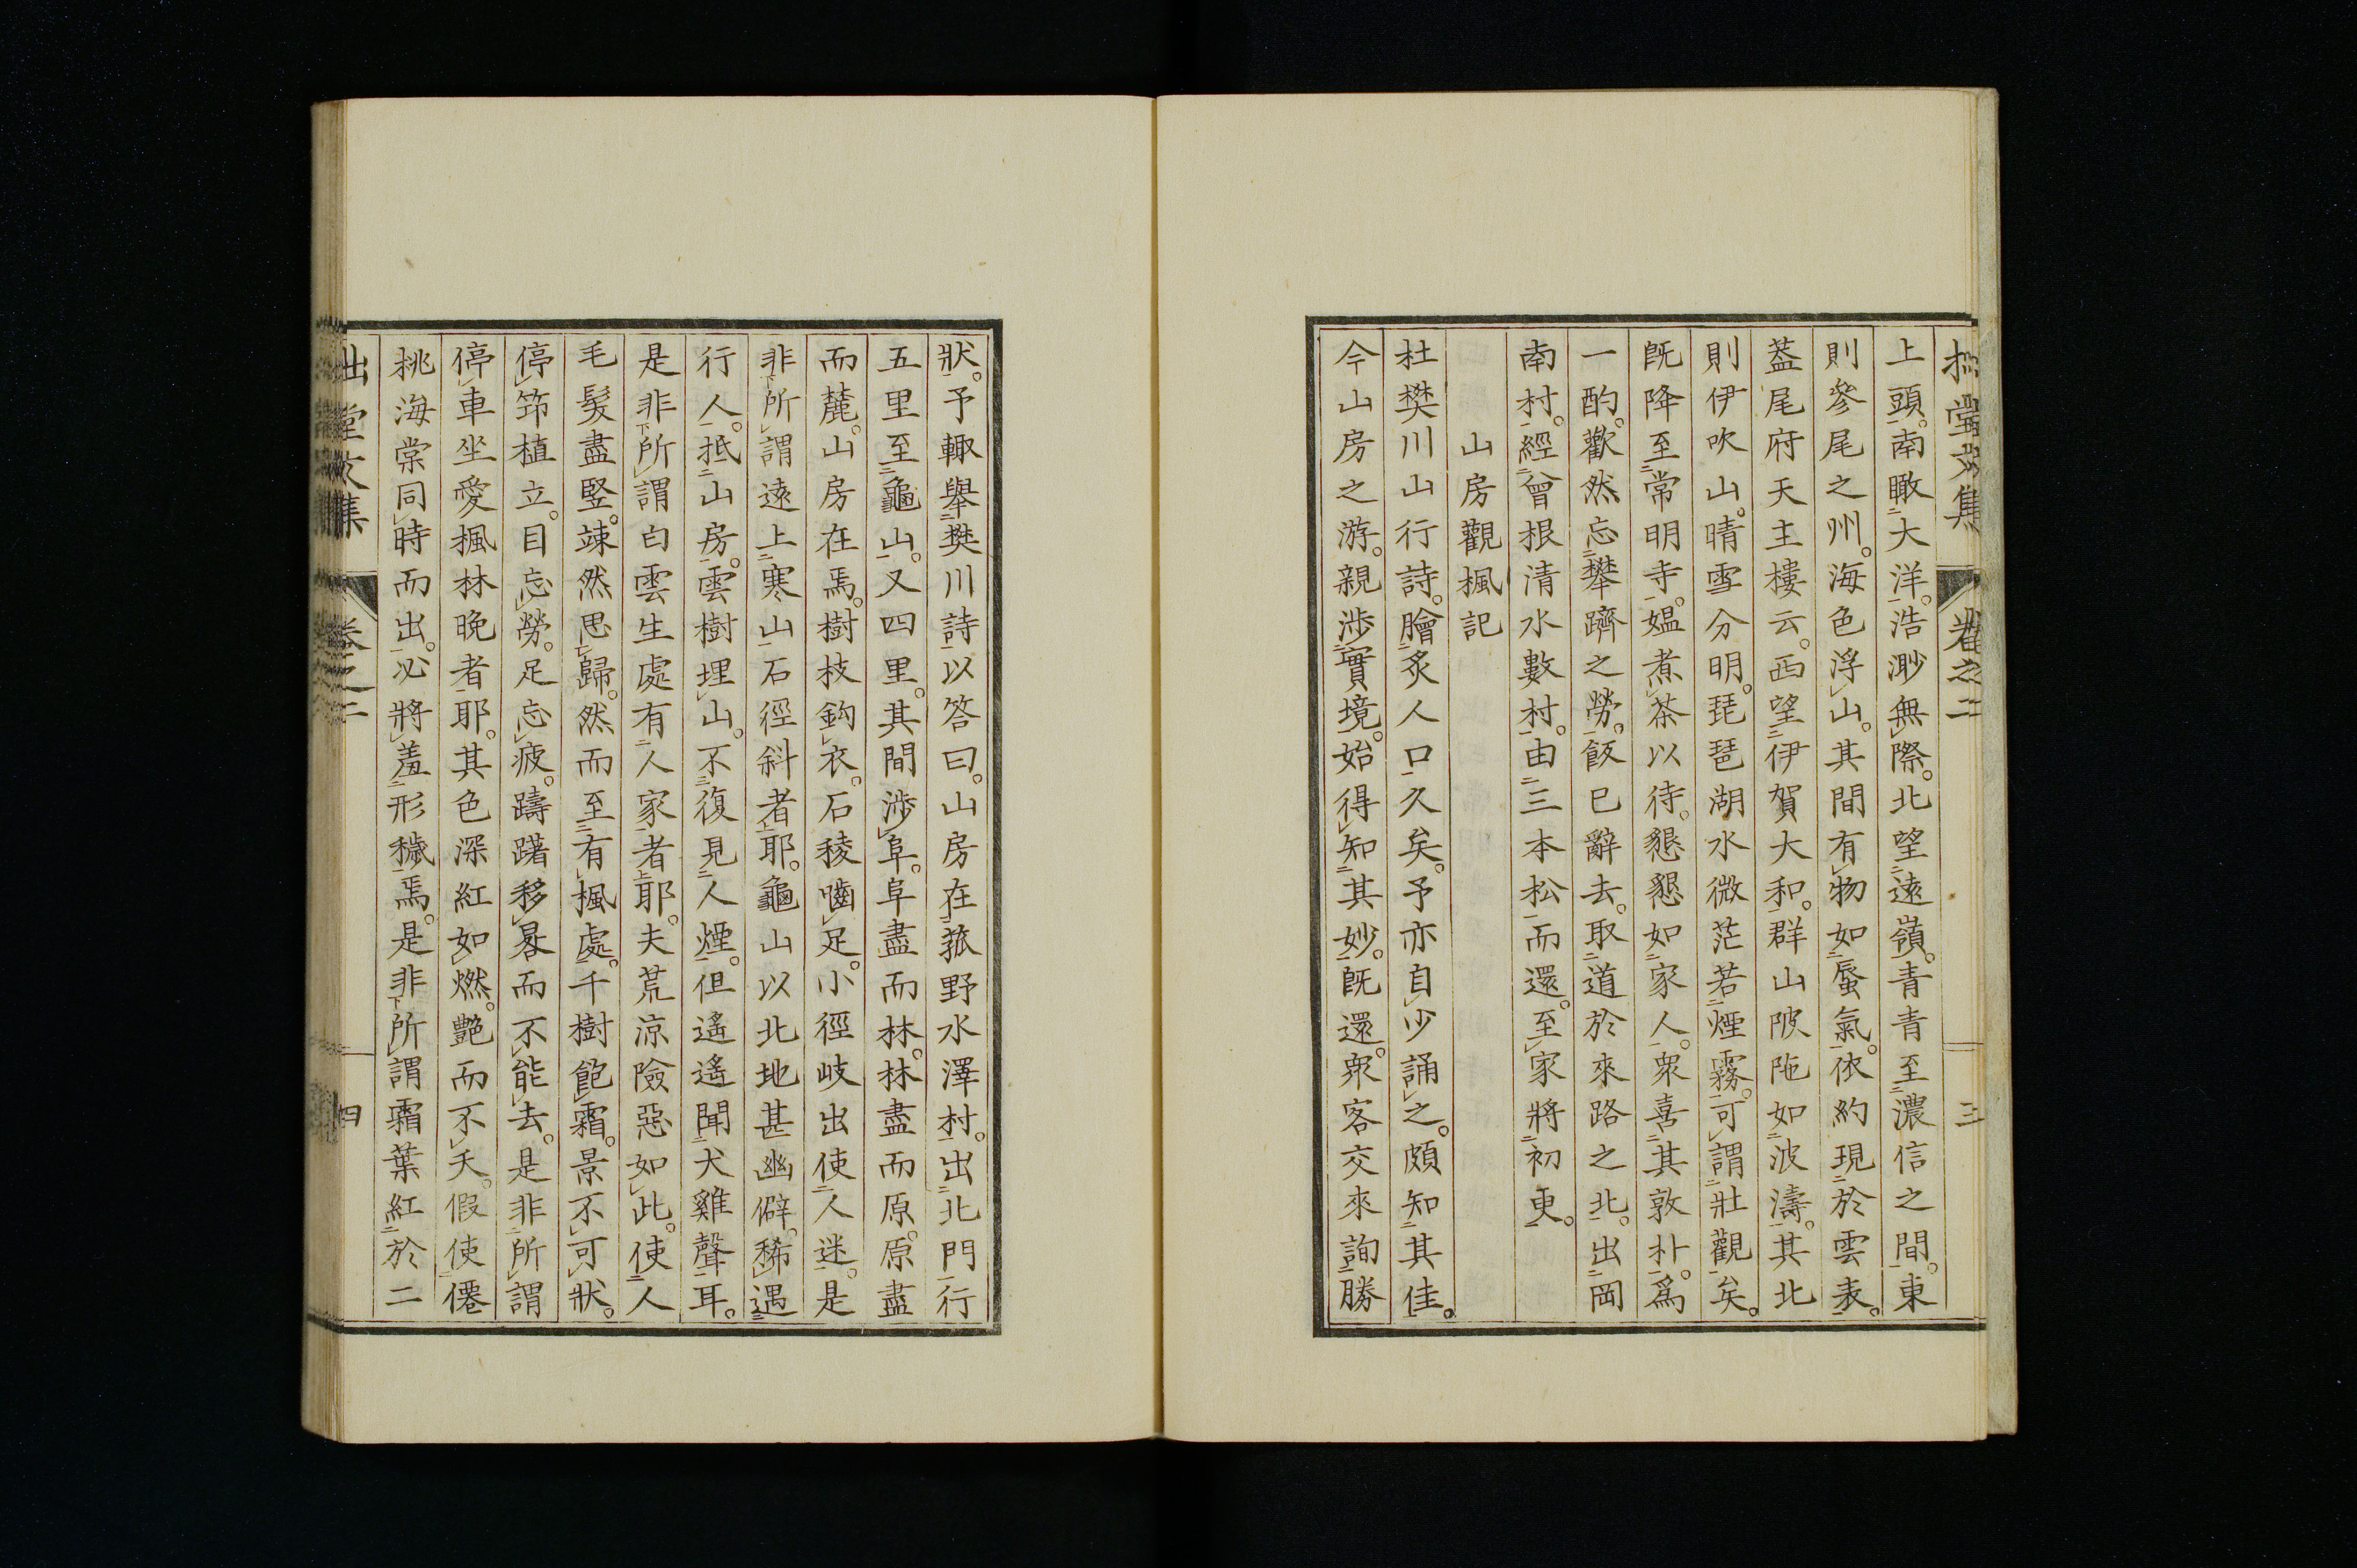 堂文集 卷之二 三
上頭。南瞰大洋。浩渺無際。北望遠嶺。青青至濃信之間。東
則參尾之州。海色浮山。其間有物如蜃氣。依約現於雲表。
蓋尾府天主樓云。西望伊賀大和。群山陂陁如波濤。其北
則伊吹山。晴雪分明。琵琶湖水微茫若煙霧。可謂壯觀矣。
既降至常明寺。媼煮茶以待。懇懇如家人。衆喜其敦朴。爲
一酌。歡然忘攀躋之勞。飯已辭去。取道於來路之北。出岡
南村。經曾根清水數村。由三本松而還。至家將初更。
山房觀楓記
杜樊川山行詩。膾炙人口久矣。予亦自少誦之。頗知其佳。
今山房之游。親涉實境。始得知其妙。既還。衆客交來詢勝
狀。予輙擧樊川詩以答曰。山房在菰野水澤村。出北門行
五里至龜山。又四里。其間涉阜。阜盡而林。林盡而原。原盡
而麓。山房在焉。樹枝鈎衣。石稜嚙足。小徑岐出使人迷。是
非所謂遠上寒山石徑斜者耶。龜山以北地甚幽僻。稀遇
行人。抵山房。雲樹埋山。不復見人煙。但遙遙聞犬雞聲耳。
是非所謂白雲生處有人家者耶。夫荒涼險惡如此。使人
毛髮盡竪。竦然思歸。然而至有楓處。千樹飽霜。景不可狀。
停笻植立。目忘勞。足忘疲。躊躇移晷而不能去。是非所謂
停車坐愛楓林晩者耶。其色深紅如燃。艷而不夭。假使僊
桃海棠同時而出。必將羞形穢焉。是非所謂霜葉紅於二
堂文集 卷之二 四